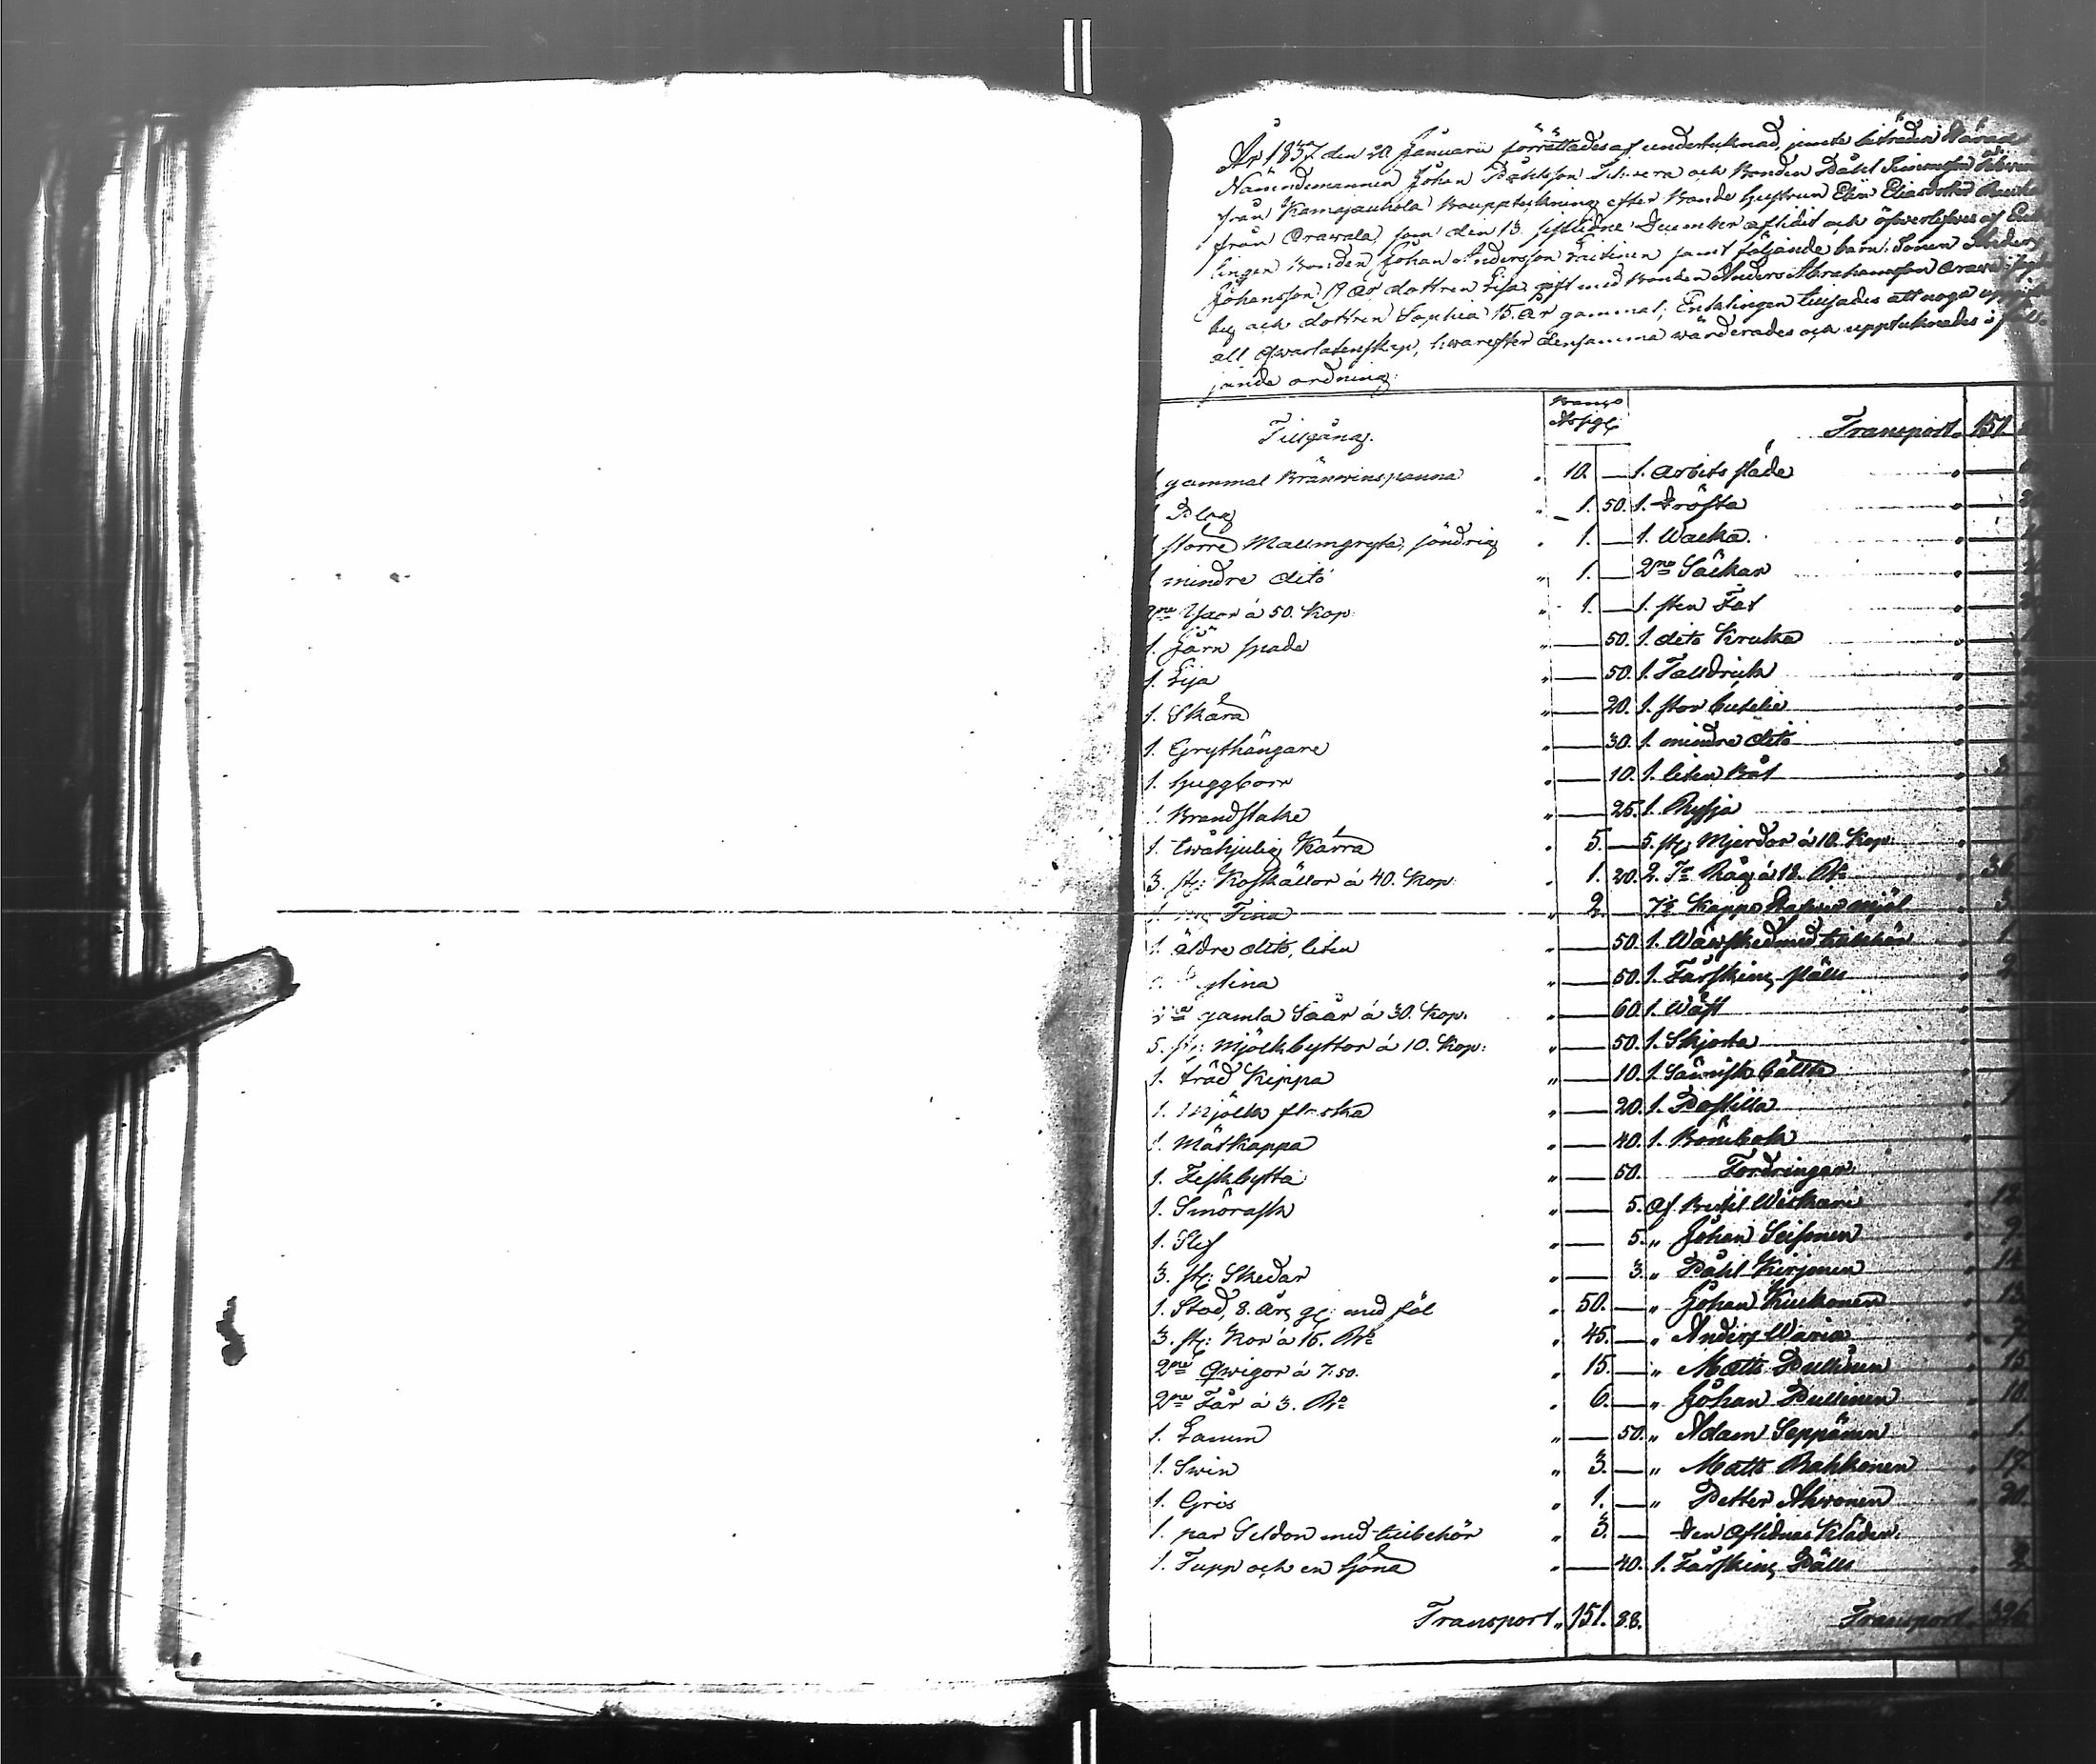 År 1837 den 20 Januarii förrättades af undertecknad, jemte biträda
Nämndemannen Johan Påhlsson och Bonden Påhl Simonsson
från Kamajauhola Bouppteckning efter Bonde hustrun Elin Eliasdotter
från Orawala, som den 13. sistledne December aflidit och öfwerlefwes af Enk
lingen Bonden Johan Andersson Laitinen samt följande barn: Sonen
Johansson 19 år dottren Lisa gift med Bonden Anders Abrahamsson
och dottren Sophia 15. år gammal; Enklingen tilsades att noga
all qwarlåtenskap, hwarefter densamma wärderades och upptecknades i föl-
jande ordning:
Tillgång. Banco Ass: Transport. 151.
1 gammal Bränwins panna " 10. — 1. Arbets släde
1 Plog " 1. 50. 1. Dröfta
1 större Mallmgryta, söndrig " 1. — 1. Wacka
1 mindre dito " 1. — 2ne Säckar
2ne Yxor á 50. Kop: " 1. — 1. sten Fat
1. Järn spade " — 50. 1. dito Kruka
1. Lija " — 50. 1. Talldrick
1. Skära " — 20. 1. stor butelie
1. Grythängare " — 30. 1. mindre dito
1. huggborr " — 10. 1. liten Båt 3
1 Brandstake " — 25. 1. Ryssja
1. twåhjulig Kärra " 5. — 5. st: Mjerdar á 10. Kop:
3. st: Koskällor á 40. Kop: " 1. 20. 2. Tr Råg á 18. R: 36
1. Tina " 2. — 7½ Kappe mjöl 3
1. äldre dito, liten " — 50. 1. Wäfsked med tilbehör 1
tina " — 50. 1. Fårskins fläll 2
2ne gamla Såår á 30. Kop: " — 60. 1. Wäst
5. st: Mjölkbyttor á 10. Kop: " — 50. 1. Skjorta
1. träd Kippa " — 10. 1. bälte
1. Mjölk flaska " — 20. 1. Postilla 1
1. Mätkappa " — 40. 1. Bönbok
1. Fiskbytta " — 50. Fordringar
1. Smörask " — 5. Af Bertil Wiskari 12
1. Slef " — 5. " Johan Seisonen 9
3. st: Skedar " — 3. " Påhl Kirjonen 14
1. Stod, 8. års gl: med föl " 50. — " Johan Kuikonen 13
3. st: Kor á 15. R: " 45. — " Anders Waria 7
2ne Qwigor á 7:50. " 15. — " Matts Pullinen 15
2ne Får á 3. R: " 6. — " Johan Pullinen 10.
1. Lamm " — 50. " Adam Seppänen 1.
1. Swin " 3. — " Matts Rahkonen 17
1. Gris " 1. — " Petter Ahwonen 20.
1. par Seldon med tilbehör " 3. — Den Aflidnas Kläder:
1. Tupp och en höna " — 40. 1. Fårskins Päls 2
Transport. " 151. 88. Transport. 326